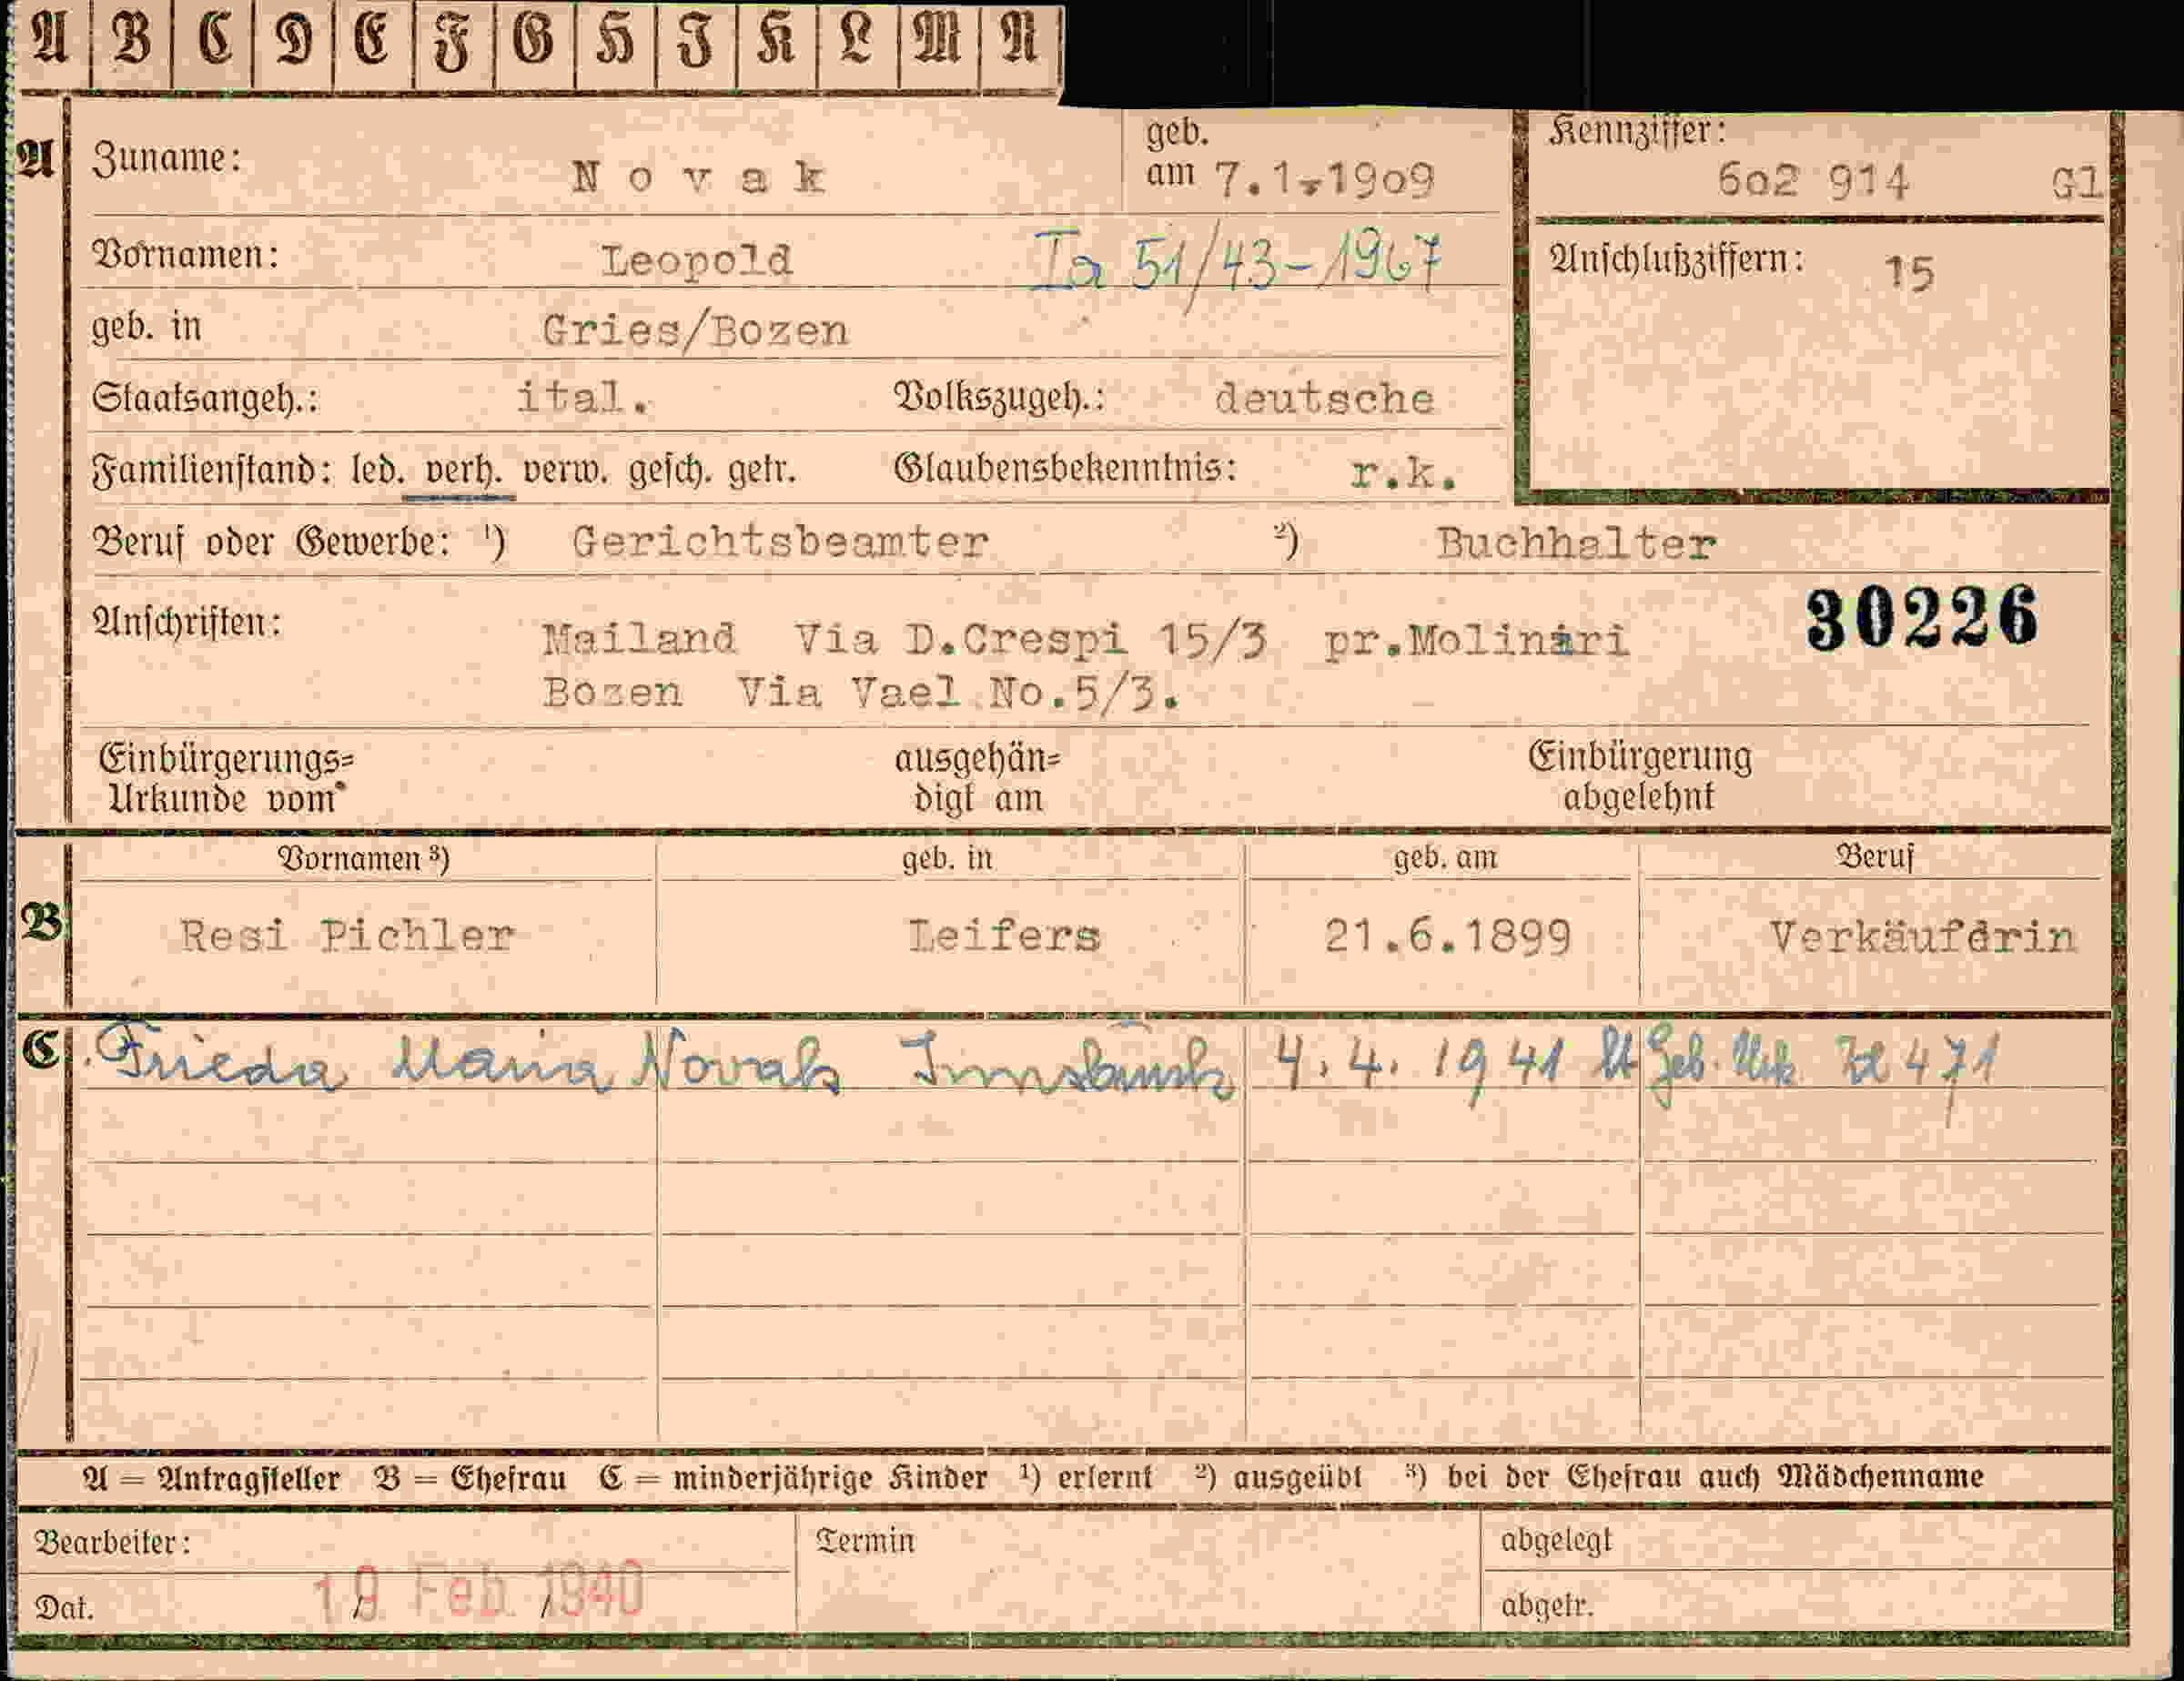 A B C D E F G H I K L M N
A Zuname: Novak geb. am 7.1.1909 Kennziffer: 602 914 G1
Vornamen: Leopold Ia 51/43-1967 Anschlußziffern: 15
geb. in Gries/Bozen
Staatsangeh.: ital. Volkszugeh.: deutsche
Familienstand: led. verh. verw. gesch. getr. Glaubensbekenntnis: r.k.
Beruf oder Gewerbe: ¹) Gerichtsbeamter ²) Buchhalter
Anschriften: Mailand Via D.Crespi 15/3 pr.Molinari 30226
Bozen Via Vael No.5/3.
Einbürgerungs= ausgehän= Einbürgerung
Urkunde vom digt am abgelehnt
Vornamen ³) geb. in geb. am Beruf
B Resi Pichler Leifers 21.6.1899 Verkäufdrin
C Frieda Maria Novak Innsbruck 4.4.1941 lt Geb. Urk. Zl 471
A = Antragsteller B = Ehefrau C = minderjährige Kinder ¹) erlernt ²) ausgeübt ³) bei der Ehefrau auch Mädchenname
Bearbeiter: Termin abgelegt
Dat. Feb. 1940 abgetr.